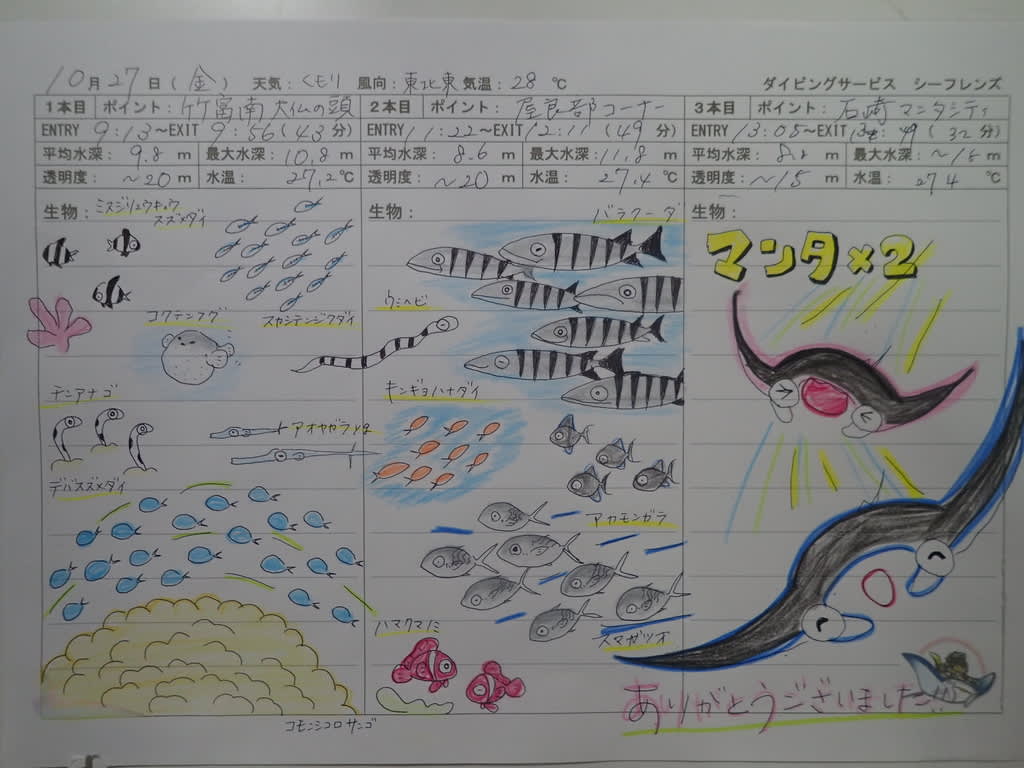 10月27日(金) 天気：くもり 風向：東北東 気温：28℃ ダイビングサービス シーフレンズ
1本目 ポイント：竹富南 大仏の頭
ENTRY 9:13～EXIT 9:56(43分)
平均水深： 9.8 m 最大水深：10.8 m
透明度： ～20 m 水温： 27.2℃
生物：ミスジリュウキュウ
スズメダイ
コクテンフグ
スカシテンジクダイ
チンアナゴ
アオヤガラ
デバスズメダイ
コモンシコロサンゴ
2本目 ポイント： 屋良部コーナー
ENTRY 11:22～EXIT 12:11(49分)
平均水深： 8.6 m 最大水深：11.8 m
透明度： ～20 m 水温： 27.4℃
生物： バラクーダ
ウミヘビ
キンギョハナダイ
アカモンガラ
スマガツオ
ハマクマノミ
3本目 ポイント： 石崎 マンタシティ
ENTRY 13:05～EXIT
(32分)
平均水深： m 最大水深：～15 m
透明度：～15 m 水温： 27.4℃
生物：
マンタ×2
ありがとうございました!!